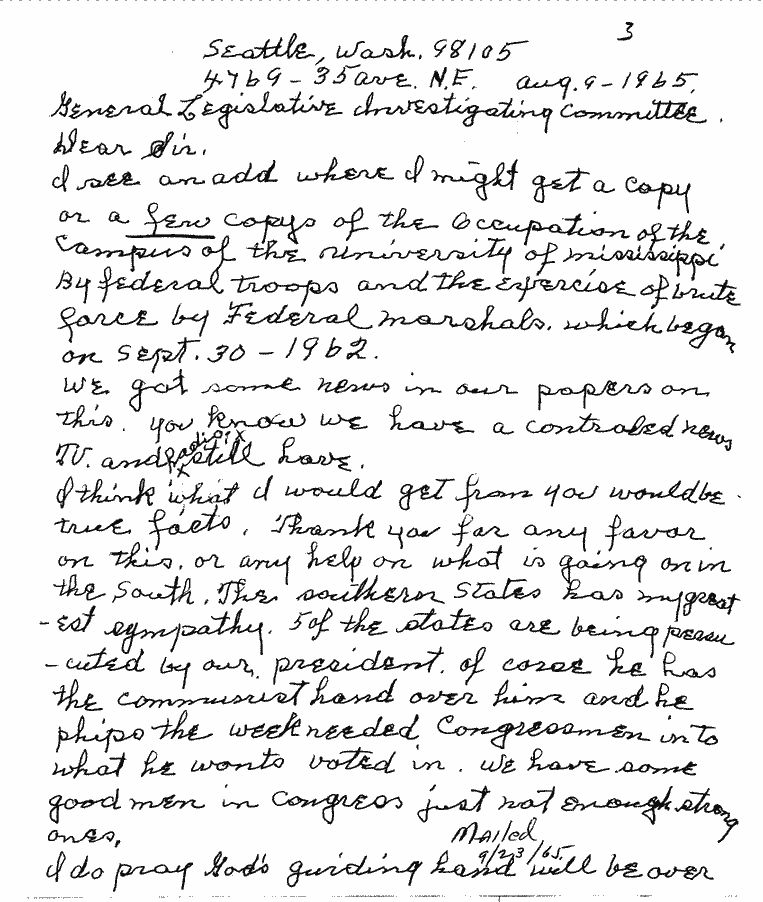 3
Seattle, Wash. 98105
4769 - 35 ave. N.E. Aug. 9 - 1965.
General Legislative Investigating Committee.
Dear Sir.
I see an add where I might get a copy
or a few copys of the Occupation of the
Campus of the University of Mississippi
By federal troops and the exercise of brute
force by Federal marshals. which began
on Sept. 30 - 1962.
We got some news in our papers on
this. you know we have a controled news
radio x
TV. and x still have.
I think what I would get from you would be
true facts. Thank you for any favor
on this. or any help on what is going on in
the South. The southern States has my great
-est sympathy. 5 of the states are being persu
-cuted by our president. of corse he has
the communist hand over him and he
phips the week needed Congressmen in to
what he wonts voted in. We have some
good men in Congress just not enough strong
ones.
Mailed
9/23/65
I do pray God's guiding hand will be over